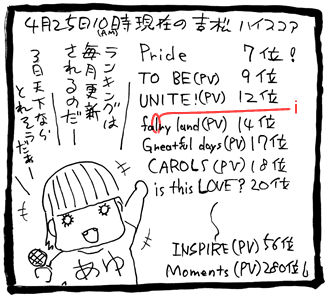 4月25日10時現在の吉松ハイスコア
(AM)
Pride 7位!
TO BE(PV) 9位
UNITE!(PV) 12位
i
fairy land(PV) 14位
Greatful days(PV) 17位
CAROLS(PV) 18位
is this LOVE? 20位
INSPIRE(PV) 56位
Moments(PV) 280位
ランキングは
毎月更新
されるのだー
3日天下なら
とれそうだぁー
あゆ